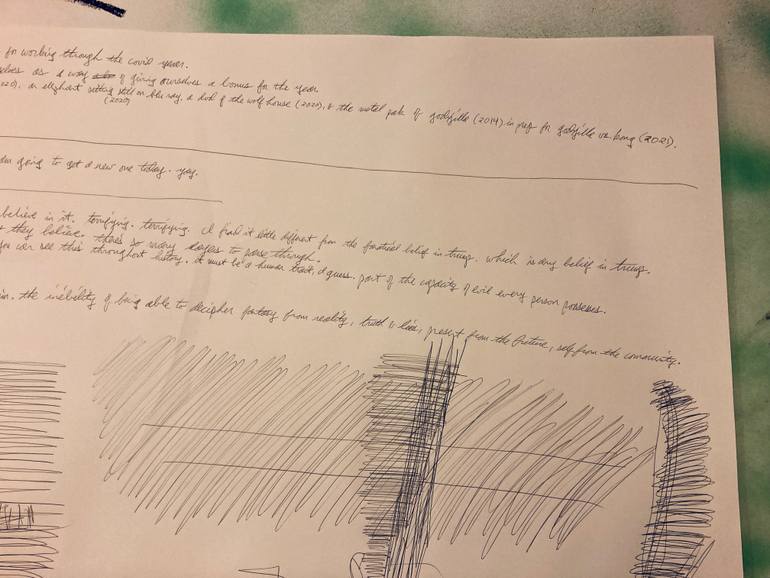 for working through the covid years.
selves as a way of giving ourselves a bonus for the year.
2020), an elephant sitting still on blu ray, a dvd of the wolf house (2020), & the metal pak of godzilla (2014) in prep for godzilla vs. kong (2021).
(2020)
am going to get a new one today. yay.
believe in it. terrifying. terrifying. I find it little different from the fanatical belief in things. which is any belief in things.
they believe. there's so many layers to parse through.
you can see this throughout history. it must be a human trait, I guess. part of the capacity of evil every person possesses.
in. the inability of being able to decipher fantasy from reality, truth & lies, present from the future, self from the community.